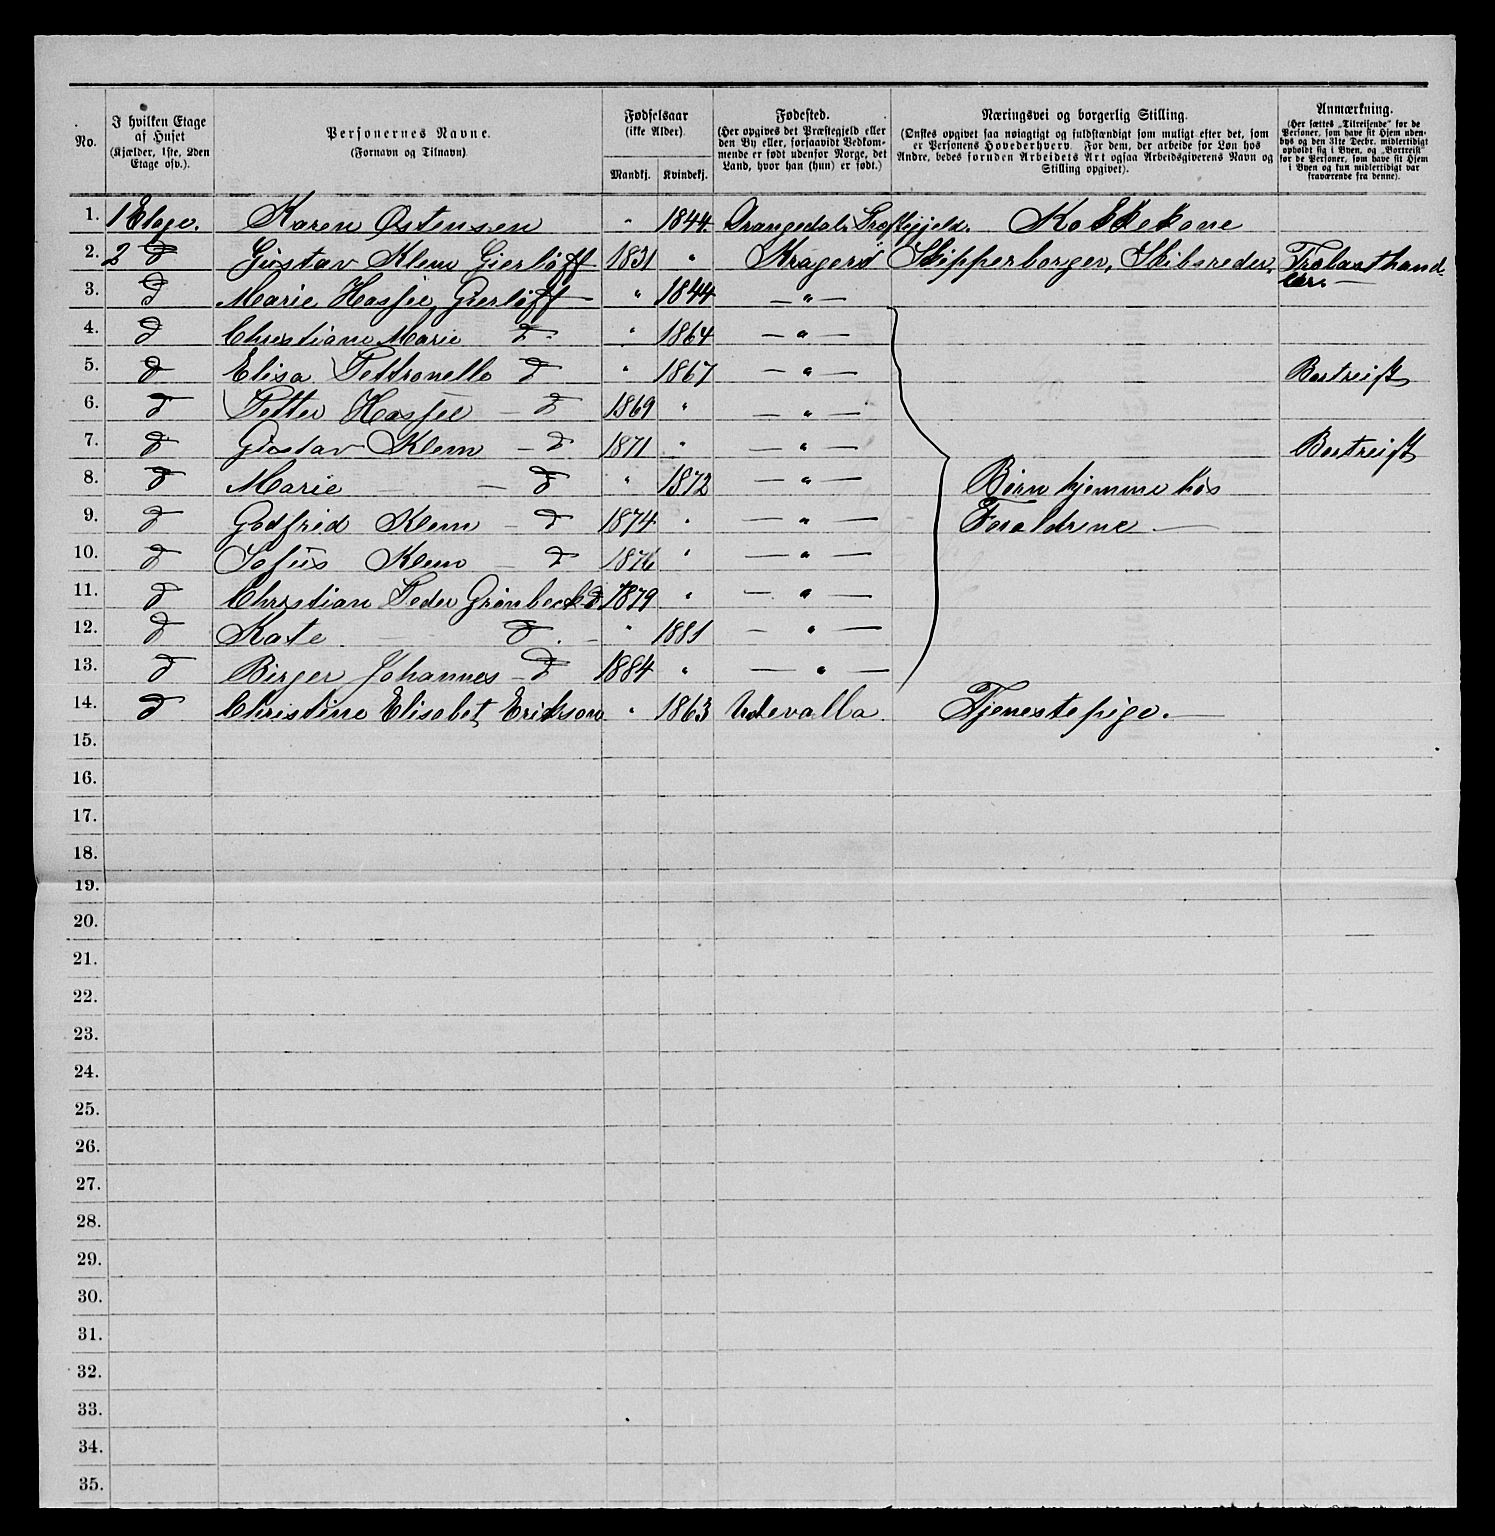 No.
I hvilken Etage af Huset (Kjælder, 1ste, 2den Etage osv.).
Personernes Navne. (Fornavn og Tilnavn).
Fødselsaar (ikke Alder).
Mandkj. Kvindekj.
Fødested. (Her opgives det Præstegjeld eller den By eller, forsaavidt Vedkommende er født udenfor Norge, det Land, hvor han (hun) er født.)
Næringsvei og borgerlig Stilling. (Ønskes opgivet saa nøiagtigt og fuldstændigt som muligt efter det, som er Personens Hovederhverv. For dem, der arbeide for Løn hos Andre, bedes foruden Arbeidets Art ogsaa Arbeidsgiverens Navn og Stilling opgivet).
Anmærkning. (Her sættes „Tilreisende" for de Personer, som have sit Hjem udenbys og den 31te Decbr. midlertidigt opholdt sig i Byen, og „Bortreist" for de Personer, som have sit Hjem i Byen og kun midlertidigt var fraværende fra denne).
1. 1 Etage. Karen Østensen " 1844. Drangedals Præstegjeld. Kokkekone
2. 2 d Gustav Klem Gierløff 1831 " Kragerø Skipperborger, Skibsreder, Trælasthandler. —
3. d Marie Hasfel Gierløff — " 1844 — " —
4. d Christiane Marie d " 1864 — " —
5. d Elisa Pettronelle d " 1867 — " — Bortreist
6. d Petter Hasfel — d 1869 " — " —
7. d Gustav Klem — d 1871 " — " — Bortreist
8. d Marie — d " 1872 — " — Børn hjemme hos
9. d Godfred Klem — d 1874 " — " — Foraldrene —
10. d Sofus Klem — d 1876 " — " —
11. d Christian Peder Grønbeck d 1879 " — " —
12. d Kate — d. — " 1881 — " —
13. d Birger Johannes — d 1884 " — " —
14. d Christine Elisabet Erikson " 1863 Udevalla Tjenestepige. —
15.
16.
17.
18.
19.
20.
21.
22.
23.
24.
25.
26.
27.
28.
29.
30.
31.
32.
33.
34.
35.